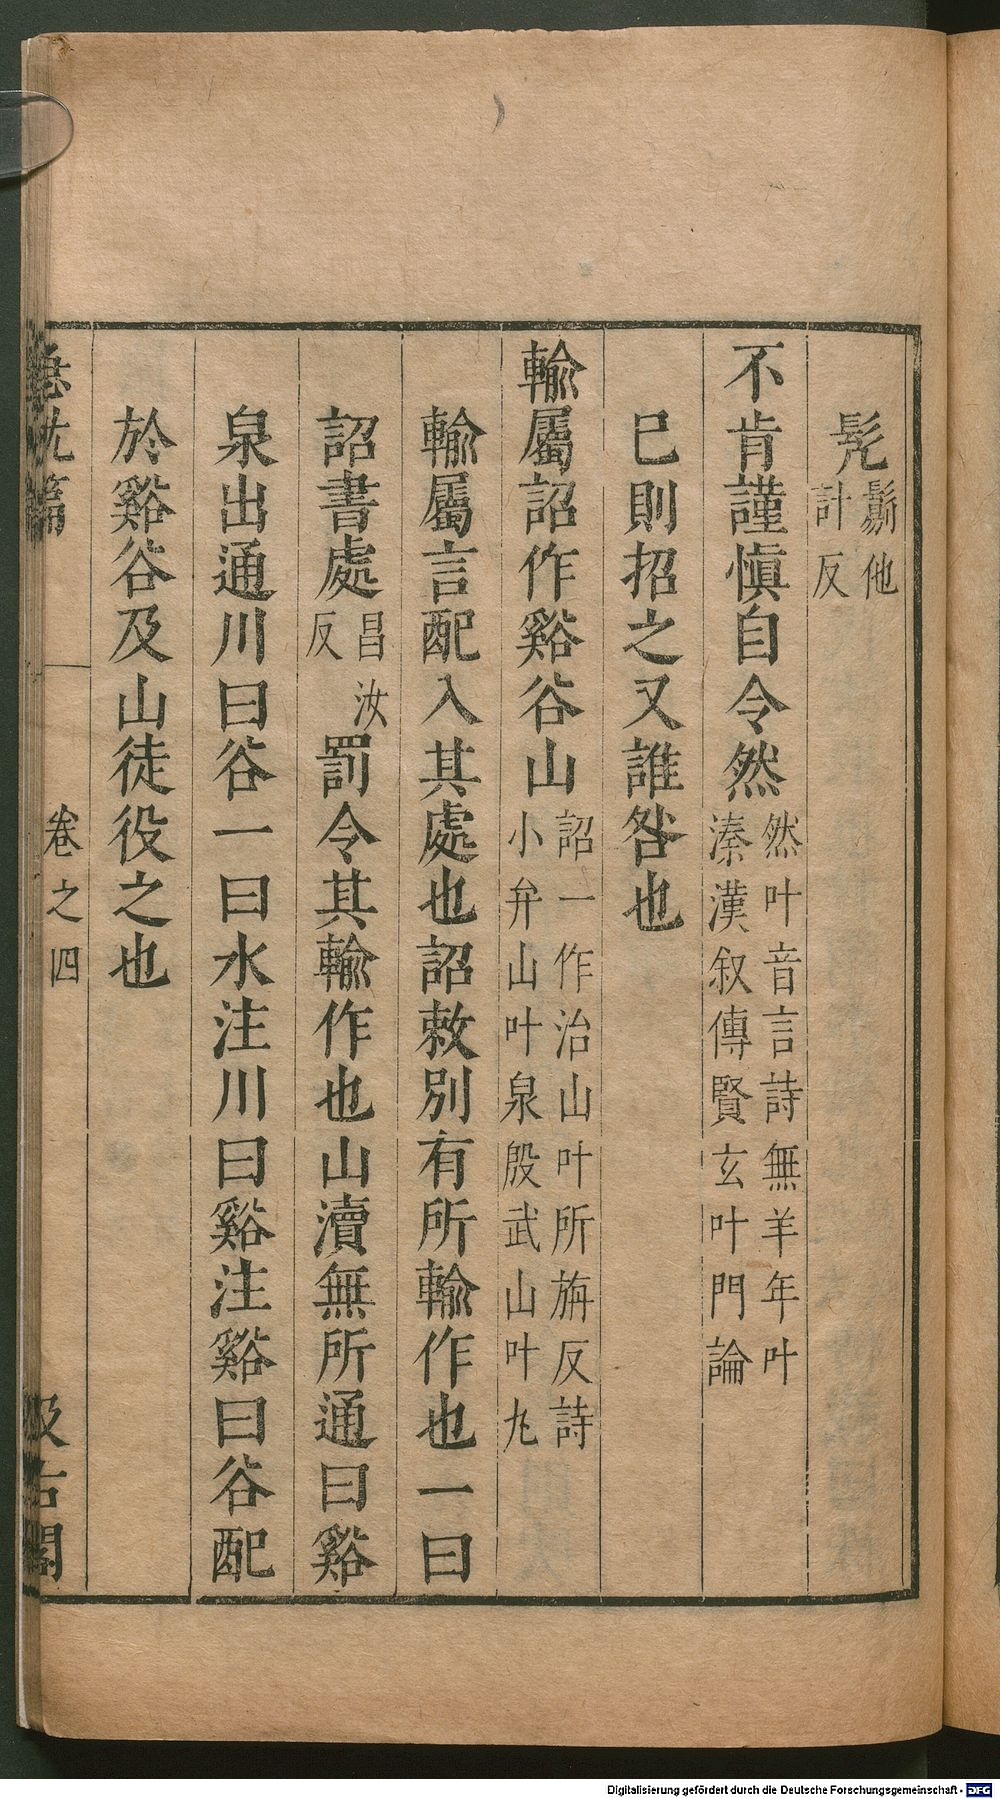 髠鬀他計反
不肯謹慎自令然然叶音言詩無羊年叶溱漢叙傳賢玄叶門論
巳則招之又誰咎也
輸屬詔作谿谷山詔一作治山叶所旃反詩小弁山叶泉殷武山叶九
輸屬言配入其處也詔敕別有所輸作也一曰
詔書處昌汝反罰令其輸作也山瀆無所通曰谿
泉出通川曰谷一曰水注川曰谿注谿曰谷配
於谿谷及山徒役之也
急就篇 卷之四 汲古閣
Digitalisierung gefördert durch die Deutsche Forschungsgemeinschaft - DFG